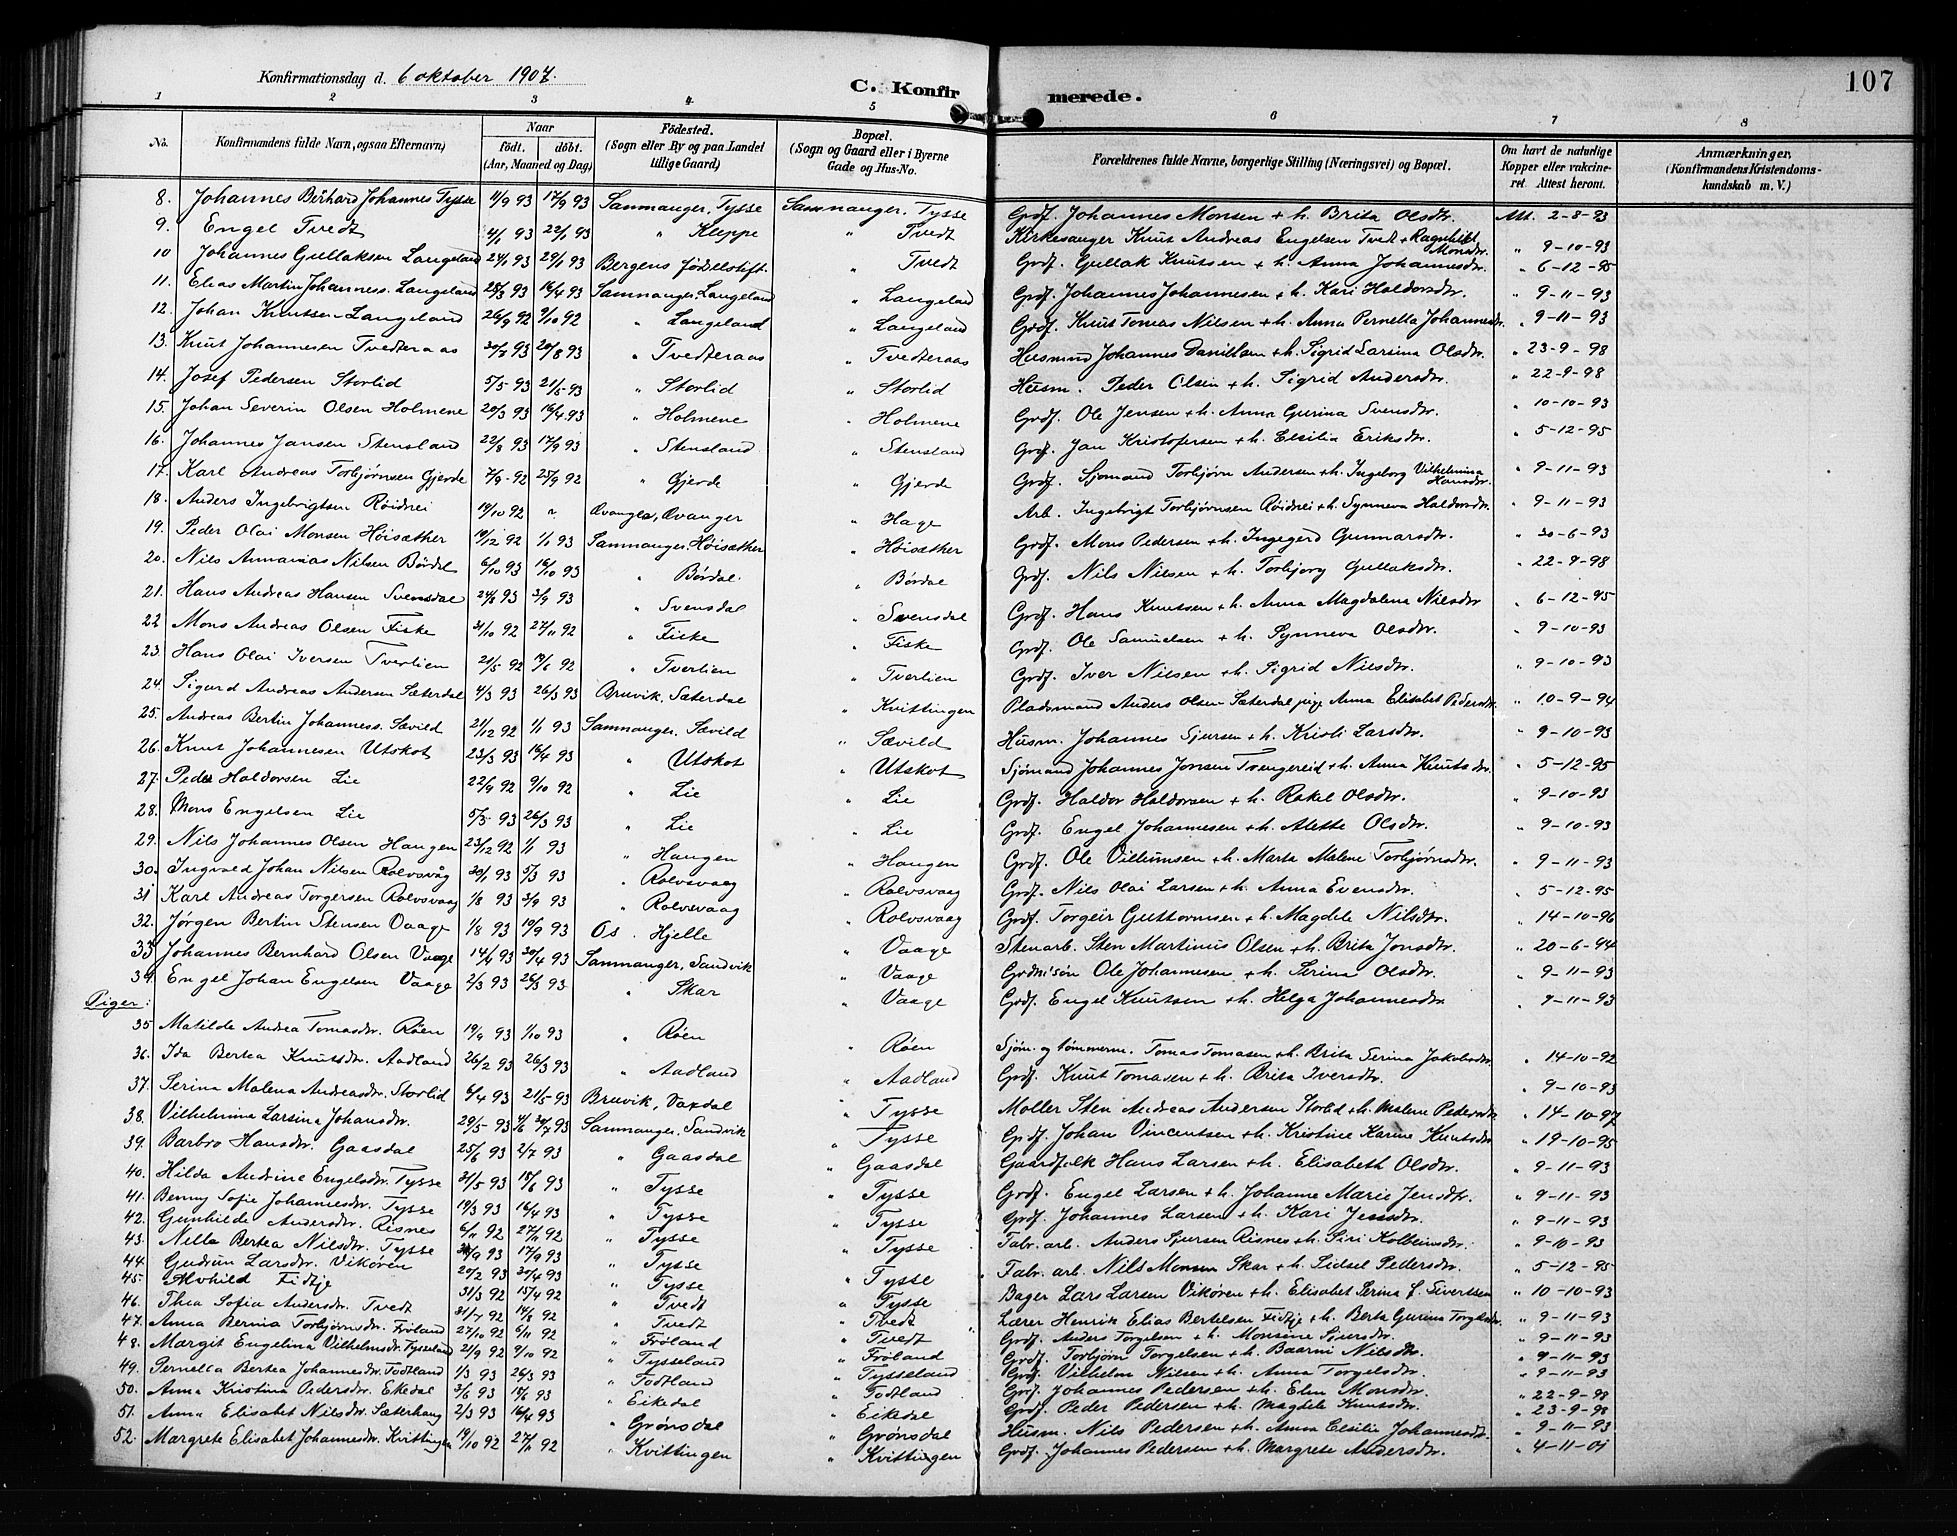 Konfirmationsdag d. 6 oktober 1907.
C. Konfirmerede.
107
1 2 3 4 5 6 7 8
No.
Konfirmandens fulde Navn, ogsaa Efternavn)
Naar
født. døbt.
(Aar, Maaned og Dag)
Fødested.
(Sogn eller By og paa Landet tillige Gaard)
Bopæl.
(Sogn og Gaard eller i Byerne Gade og Hus-No.
Forældrenes fulde Navne, borgerlige Stilling (Næringsvei) og Bopæl.
Om havt de naturlige Kopper eller vakcineret. Attest herom.
Anmærkninger,
(Konfirmandens Kristendomskundskab m. V.)
8. Johannes Bernhard Johannes Tysse 11/9 93 17/9 93 Samnanger, Tysse Samnanger, Tysse Grdf. Johannes Monsen + h. Brita Olsdtr. Att. 2-8-93
9. Engel Tvedt 4/1 93 22/1 93 " Kleppe " Tvedt Kirkesanger Knut Andreas Engelsen Tvedt + Ragnhild Monsdtr. " 9-10-93
10 Johannes Gullaksen Langeland 24/1 93 29/1 93 Bergens fødselstift. " Tvedt Grdf. Gullak Knutsen + h. Anna Johannesdtr. " 6-12-95
11. Elias Martin Johanness. Langeland 25/3 93 16/4 93 Samnanger, Langeland " Langeland Grdf. Johannes Johannesen + h. Kari Haldorsdtr. " 9-11-93
12. Johan Knutsen Langeland 26/9 92 9/10 92 " Langeland " Langeland Grdf. Knut Tomas Nilsen + h. Anna Pernella Johannesdtr. " 9-11-93
13. Knut Johannesen Tvedteraas 30/7 93 20/8 93 " Tvedteraas " Tvedteraas Husmand Johannes Danielsen + h. Sigrid Larsina Olsdtr. " 23-9-98
14. Josef Pedersen Storlid 5/5 93 21/5 93 " Storlid " Storlid Husm. Peder Olsen + h. Sigrid Andersdtr. " 22-9-98
15. Johan Severin Olsen Holmene 20/3 93 16/4 93 " Holmene " Holmene Grdf. Ole Jensen + h. Anna Gurina Svensdtr. " 10-10-93
16. Johannes Jansen Stensland 22/8 93 17/9 93 " Stensland " Stensland Grdf. Jan Kristofersen + h. Cecilia Eriksdtr. " 5-12-95
17. Karl Andreas Torbjørnsen Gjerde 7/9 92 25/9 92 " Gjerde " Gjerde Grdf. Sjømand Torbjørn Andersen + h. Ingeborg Vilhelmina Hansdtr. " 9-11-93
18. Anders Ingebrigtsen Røidrei 19/10 92 " Evanger, Evanger " Hage Arb. Ingebrigt Torbjørnsen Røidrei + h. Synneva Haldorsdtr. " 9-11-93
19. Peder Olai Monsen Høisæther 19/12 92 1/1 93 Samnanger, Høisæther " Høisæther Grdf. Mons Pedersen + h. Ingegerd Gunnarsdtr. " 20-6-93
20. Nils Annanias Nilsen Børdal 6/10 93 16/10 93 " Børdal " Børdal Grdf. Nils Nilsen + h. Torbjorg Gullaksdtr. " 22-9-98
21. Hans Andreas Hansen Svensdal 24/8 93 3/9 93 " Svensdal " Svensdal Grdf. Hans Knutsen + h. Anna Magdalena Nilsdtr " 6-12-95
22 Mons Andreas Olsen Fiske 31/10 92 27/11 92 " Fiske " Fiske Grdf. Ole Samuelsen + h. Synneva Olsdtr. " 9-10-93
23. Hans Olai Iversen Tverlien 21/5 92 19/6 92 " Tverlien " Tverlien Grdf. Iver Nilsen + h. Sigrid Nilsdtr. " 9-10-93
24. Sigurd Andreas Andersen Sæterdal 4/3 93 26/3 93 Bruvik, Sæterdal " Kvittingen Pladsmand Anders Olsen Sæterdal pige Anna Elisabet Pedersdtr " 10-9-94
25. Andreas Bertin Johanness. Sævild 21/12 92 1/1 93 Samnanger, Sævild " Sævild Husm. Johannes Sjursen + h. Kristi Larsdtr. " 9-10-93
26. Knut Johannesen Utskot 23/3 93 16/4 93 " Utskot " Utskot Sjømand Johannes Jonsen Tvengereid + h. Anna Knutsdtr. " 5-12-95
27. Peder Haldorsen Lie 22/9 92 9/10 92 " Lie " Lie Grdf. Haldor Haldorsen + h. Rakel Olsdtr. " 9-10-93
28. Mons Engelsen Lie 5/3 93 26/3 93 " Lie " Lie Grdf. Engel Johannesen + h. Alette Olsdtr. " 9-10-93
29. Nils Johannes Olsen Haugen 23/12 92 1/1 93 " Haugen " Haugen Grdf. Ole Villumsen + h. Marta Malene Torbjørnsdtr. " 9-11-93
30. Ingvald Johan Nilsen Rolvsvåg 30/1 93 5/3 93 " Rolvsvaag " Rolvsvaag Grdf. Nils Olai Larsen + h. Anna Evensdtr. " 5-12-95
31 Karl Andreas Torgersen Rolvsvaag 1/8 93 3/9 93 " Rolvsvaag " Rolvsvaag Grdf. Torgeir Guttormsen + h. Magdele Nilsdtr. " 14-10-96
32. Jørgen Bertin Stensen Vaage 1/8 93 10/9 93 Os. Hjelle " Vaage Stenarb. Sten Martinus Olsen + h. Brita Jonsdtr. " 20-6-94
33 Johannes Bernhard Olsen Vaage 14/4 93 30/4 93 Samnanger, Sandvik " Vaage Grdm.søn Ole Johannesen + h. Serina Olsdtr. " 9-11-93
34. Engel Johan Engelsen Vaage 2/3 93 26/3 93 " Skar " Vaage Grdf. Engel Knutsen + h. Helga Johannesdtr. " 9-11-93
Piger:
35 Matilde Andrea Tomasdtr. Røen 19/9 93 1/10 93 " Røen " Røen Sjøm. og tømmerm. Tomas Tomasen + h. Brita Serina Jakobsdtr " 14-10-92
36. Ida Bertea Knutsdtr. Aadland 26/2 93 26/3 93 " Aadland " Aadland Grdf. Knut Tomasen + h. Brita Iversdtr. " 9-10-93
37. Serina Malena Andreasdtr. Storlid 6/4 93 21/5 93 Bruvik, Vaxdal " Tysse Møller Sten Andreas Andersen Storlid + h. Malene Pedersdtr " 14-10-97
38. Vilhelmina Larsina Johansdtr. 29/5 93 4/6 30/7 93 Samnanger, Sandvik " Tysse Grdf. Johan Vincentsen + h. Kristine Karine Knutsdtr " 19-10-95
39. Barbro Hansdtr. Gaasdal 25/6 93 2/7 93 " Gaasdal " Gaasdal Gaardfolk Hans Larsen + h. Elisabeth Olsdtr. " 9-11-93
40. Hilda Andrine Engelsdtr. Tysse 21/5 93 18/6 93 " Tysse " Tysse Grdf. Engel Larsen + h. Johanne Marie Jensdtr. " 9-11-93
41. Benny Sofie Johannesdtr. Tysse 19/3 93 16/4 93 " Tysse " Tysse Grdf. Johannes Larsen + h. Kari Jensdtr. " 9-11-93
42. Gunhilde Andersdtr. Risnes 6/11 92 27/11 92 " Tysse " Tysse Fabr. arb. Anders Sjursen Risnes + h. Siri Kolbeinsdtr. " 9-10-93
43. Nella Bertea Nilsdtr. Tysse 9 93 17/9 93 " Tysse " Tysse Fabr. arb. Nils Monsen Skar + h. Sidsel Pedersdtr. " 5-12-95
44. Gudrun Larsdtr. Vikøren 20/2 93 30/4 93 " Tysse " Tysse Bager Lars Larsen Vikøren + h. Elisabet Serina f. Sivertsen " 10-10-93
45. Fidtje 31/3 92 15/4 92 " Tvedt " Tvedt Lærer Henrik Elias Bertelsen Fidtje + h. Berta Gurina Torgilsdtr. " 9-11-93
46. Thea Sofia Andersdtr. Tvedt 31/7 92 14/8 92 " Tvedt " Tvedt Grdf. Anders Torgelsen + h. Monsine Sjursdtr. " 9-11-93
47. Anna Bernina Torbjørnsdtr. Frøland 27/10 92 6/11 92 " Frøland " Frøland Grdf. Torbjørn Torgelsen + h. Baarni Nilsdtr. " 9-11-93
48. Margit Engelina Vilhelmsdtr. Tysseland 21/9 92 9/10 92 " Tysseland " Tysseland Grdf. Vilhelm Nilsen + h. Anna Torgelsdtr. " 9-11-93
49. Pernella Bertea Johannesdtr. Fodtland 1/3 93 26/3 93 " Fodtland " Fodtland Grdf. Johannes Pedersen + h. Elen Monsdtr. " 22-9-98
50. Anna Kristina Pedersdtr. Ekedal 3/6 93 18/6 93 " Eikedal " Eikedal Grdf. Peder Pedersen + h. Magdele Knutsdtr. " 23-9-98
51. Anna Elisabet Nilsdtr. Sæterhaug 2/3 93 16/4 93 " Grønsdal " Grønsdal Husm. Nils Pedersen + h. Anna Cecilie Johannesdtr. " 9-11-93
52. Margrete Elisabet Johannesdtr. Kvittingen 19/10 92 27/11 92 " Kvittingen " Kvittingen Grdf. Johannes Pedersen + h. Margrete Andersdtr. " 4-11-01